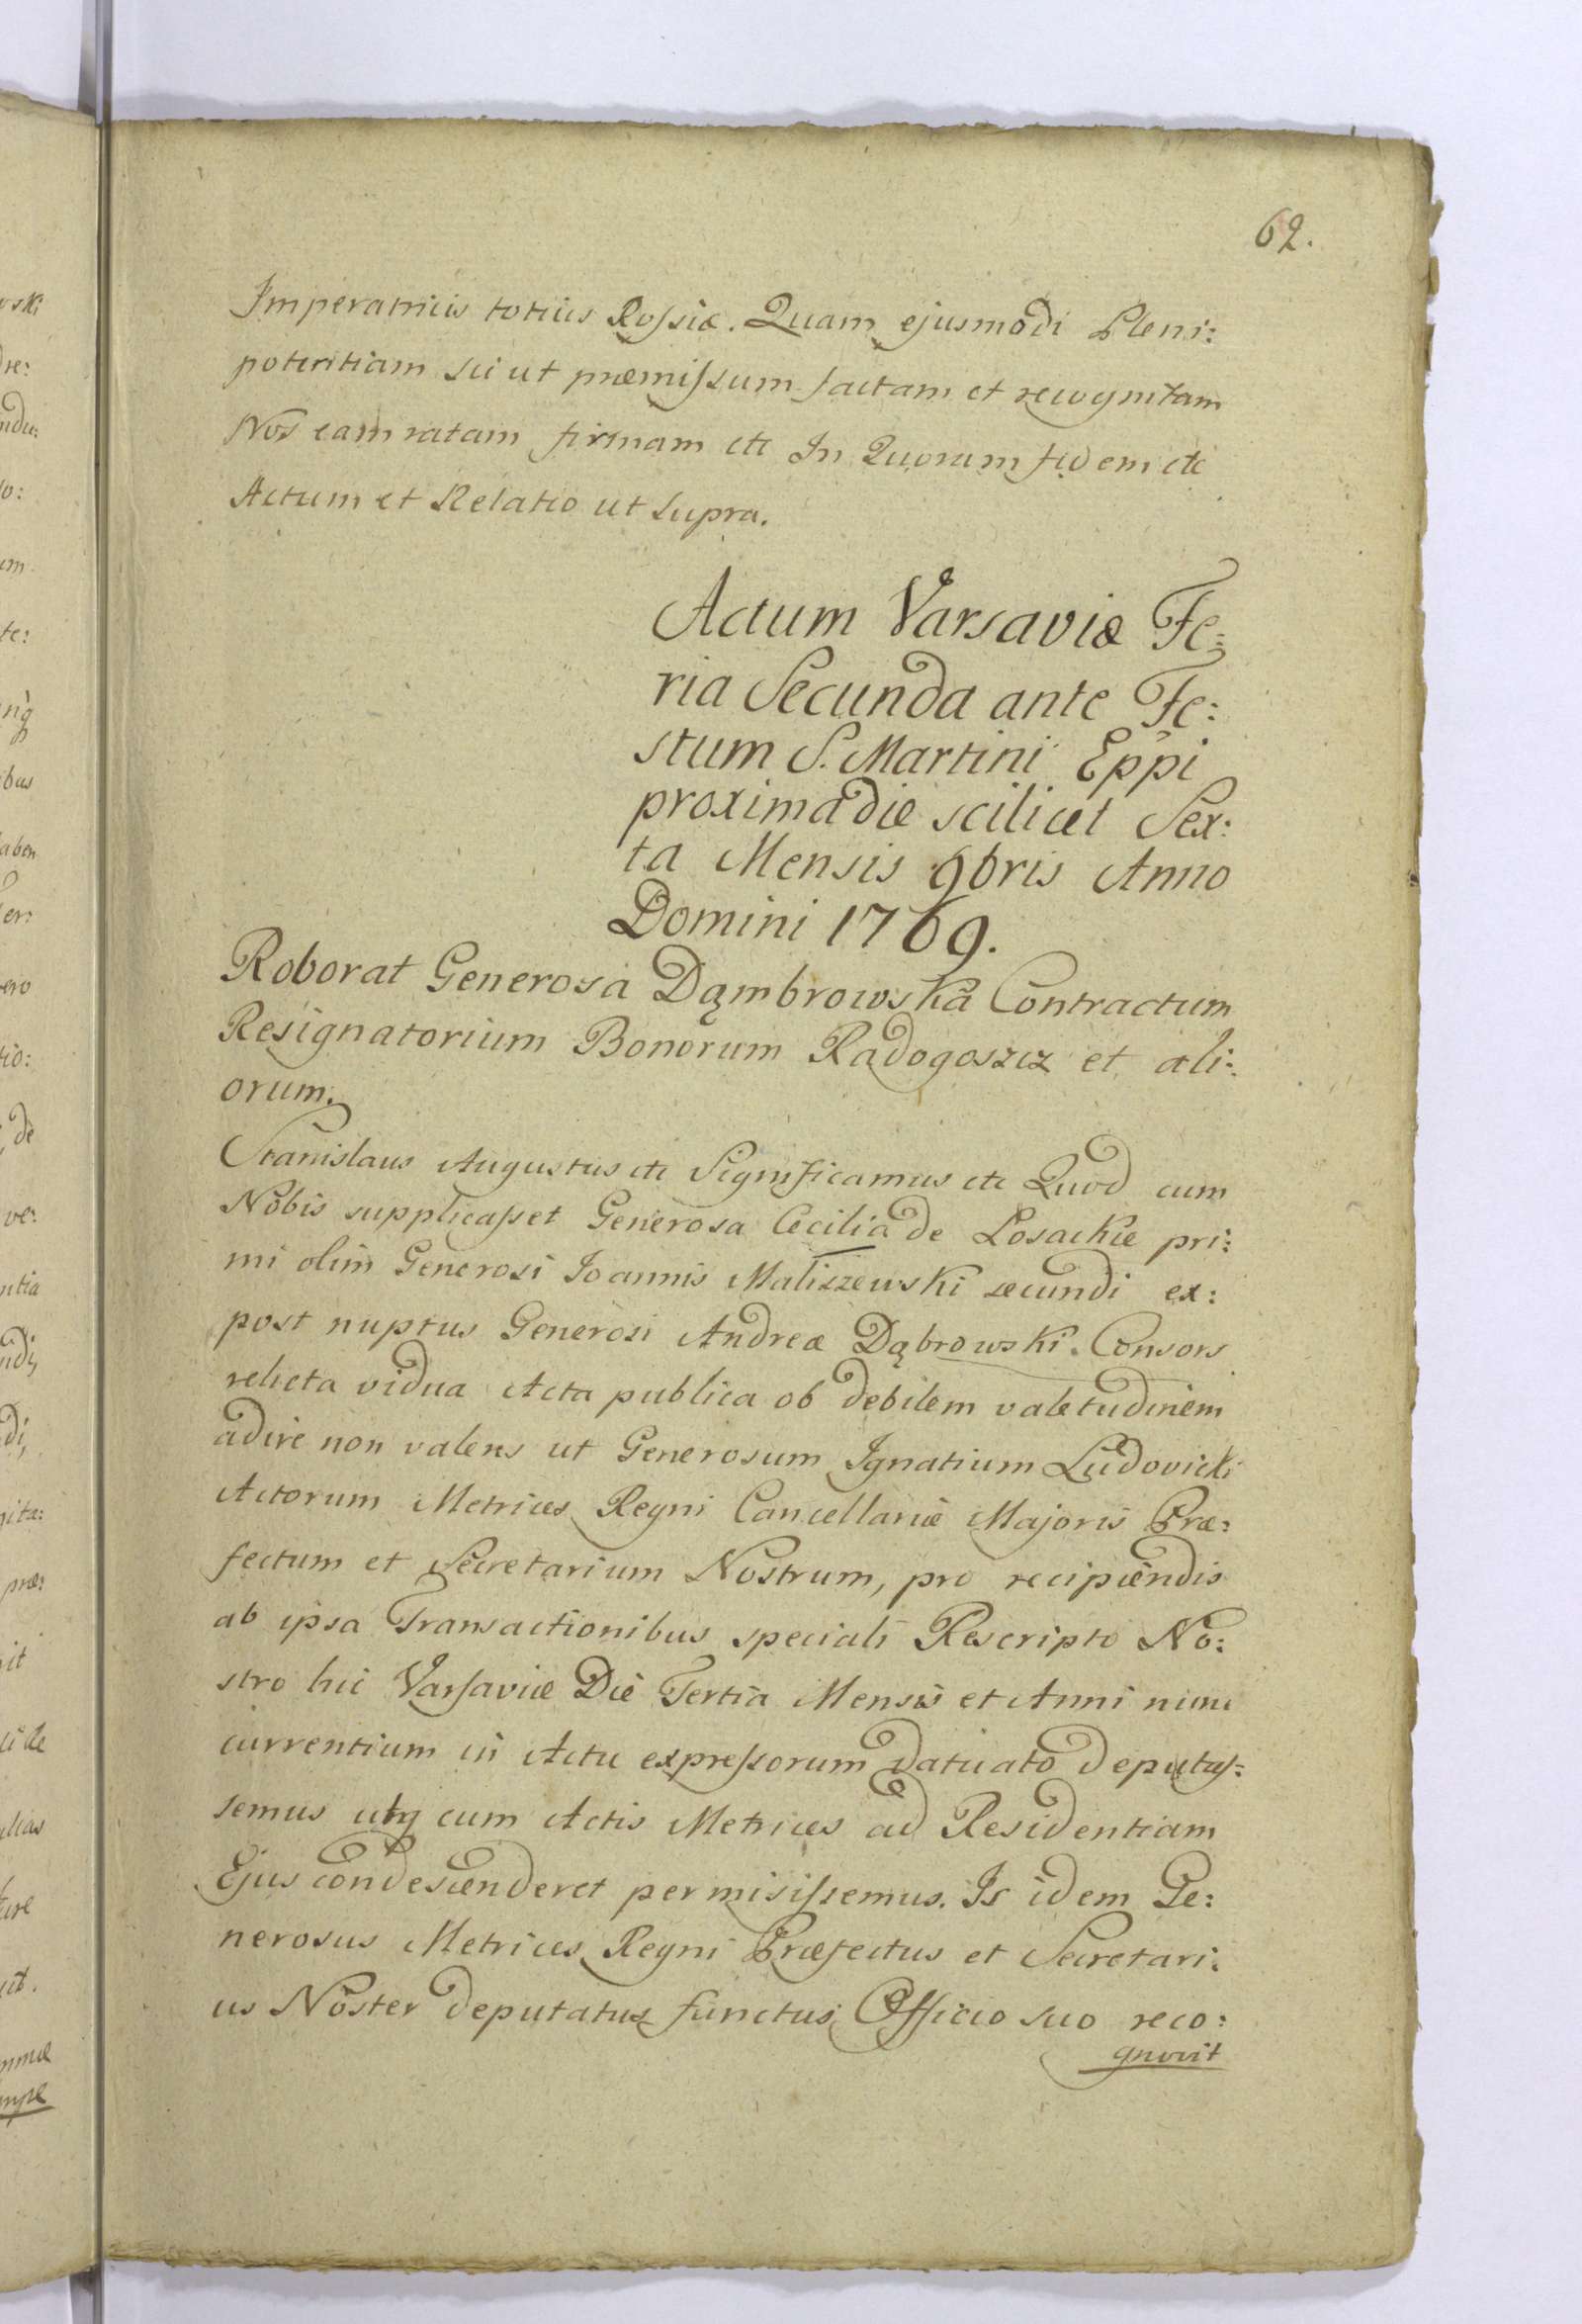 62.
Imperatricis totius Rossiæ. Quam ejusmodi Pleni:
potentiam sicut præmissum factam et recognitam
Nos eam ratam firmam etc In Quorum fidem etc
Actum et Relatio ut supra.
Actum Varsaviæ Fe:
ria Secunda ante Fe:
stum S. Martini Eppi
proxima die scilicet Sex:
ta Mensis 9bris Anno
Domini 1769.
Roborat Generosa Dąmbrowska Contractum
Resignatorium Bonorum Radogoszcz et ali:
orum.
Stanislaus Augustus etc Significamus etc Quod cum
Nobis supplicasset Generosa Cecilia de Łosackie pri:
mi olim Generosi Joannis Maliszewski secundi ex:
post nuptus Generosi Andreæ Dąbrowski Consors
relicta vidua Acta publica ob debilem valetudinem
adire non valens ut Generosum Ignatium Ludovicki
Actorum Metrices Regni Cancellariæ Majoris Præ:
fectum et Secretarium Nostrum, pro recipiendis
ab ipsa Transactionibus speciali Rescripto No:
stro hic Varsaviæ Die Tertia Mensis et Anni nunc
currentium in Actu expressorum datuato deputas:
semus utq cum Actis Metrices ad Residentiam
Ejus condescenderet permisissemus. Is idem Ge:
nerosus Metrices Regni Præfectus et Secretari:
us Noster deputatus functus Officio suo reco:
gnovit